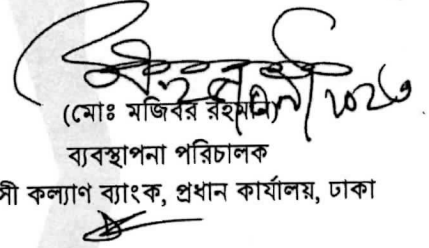 (মোঃ মজিবর রহমান)
ব্যবস্থাপনা পরিচালক
সী কল্যাণ ব্যাংক, প্রধান কার্যালয়, ঢাকা